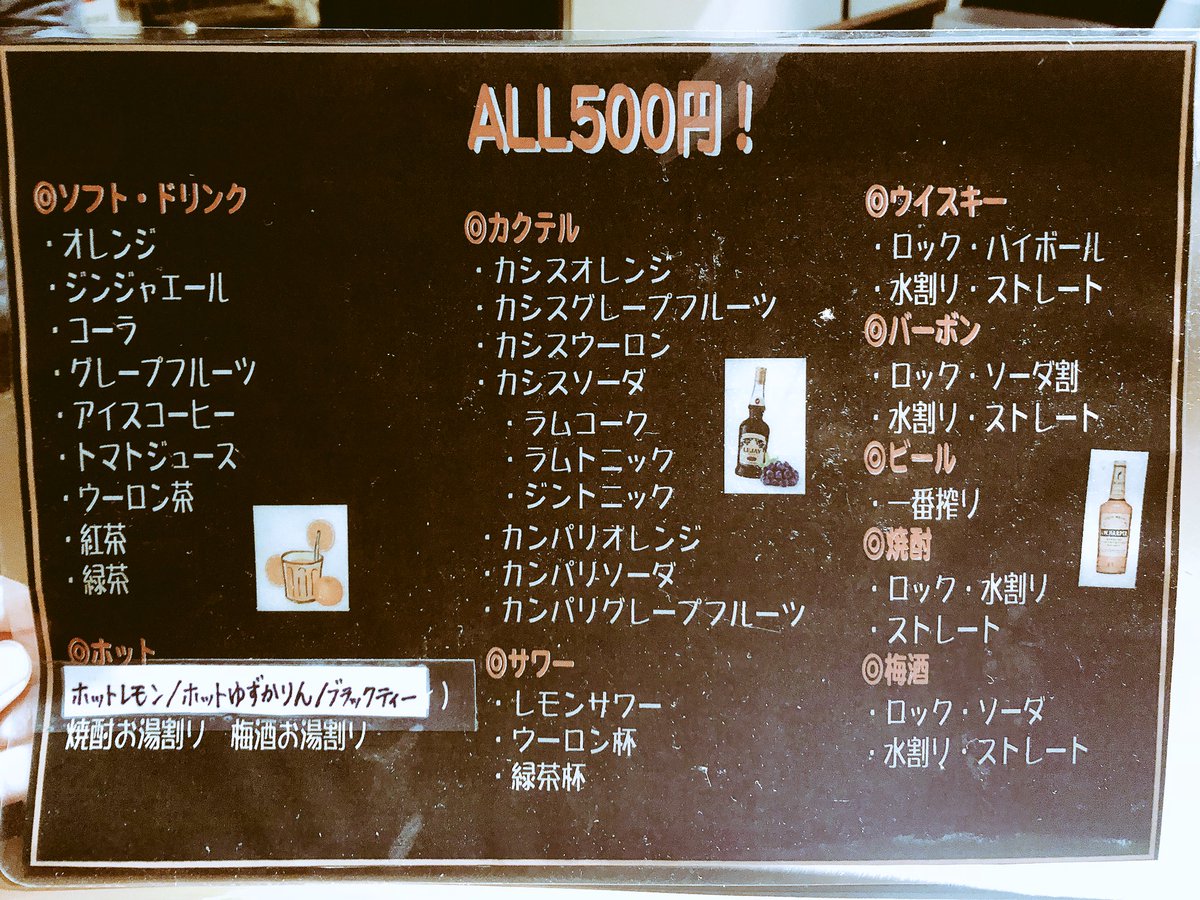 ALL500円!
◎ソフト・ドリンク
・オレンジ
・ジンジャエール
・コーラ
・グレープフルーツ
・アイスコーヒー
・トマトジュース
・ウーロン茶
・紅茶
・緑茶
◎ホット
ホットレモン/ホットゆずかりん/ブラックティー )
焼酎お湯割り 梅酒お湯割り
◎カクテル
・カシスオレンジ
・カシスグレープフルーツ
・カシスウーロン
・カシスソーダ
・ラムコーク
・ラムトニック
・ジントニック
・カンパリオレンジ
・カンパリソーダ
・カンパリグレープフルーツ
◎サワー
・レモンサワー
・ウーロン杯
・緑茶杯
◎ウイスキー
・ロック・ハイボール
・水割り・ストレート
◎バーボン
・ロック・ソーダ割
・水割り・ストレート
◎ビール
・一番搾り
◎焼酎
・ロック・水割り
・ストレート
◎梅酒
・ロック・ソーダ
・水割り・ストレート
LEJAY
I.W.HARPER